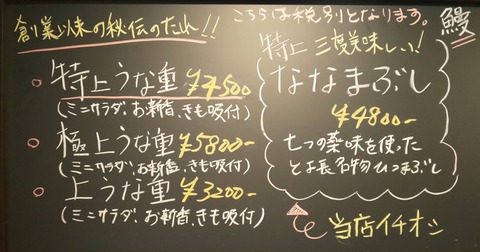 創業以来の秘伝のたれ!!
特上うな重 ¥4500
(ミニサラダ、お新香、きも吸付)
極上うな重 ¥5800-
(ミニサラダ、お新香、きも吸付)
上うな重 ¥3200-
(ミニサラダ、お新香、きも吸付)
こちらは税別となります。
鰻
特上 三度美味しい!
ななまぶし
¥4800-
七つの薬味を使った
とよ長名物ひつまぶし
当店イチオシ